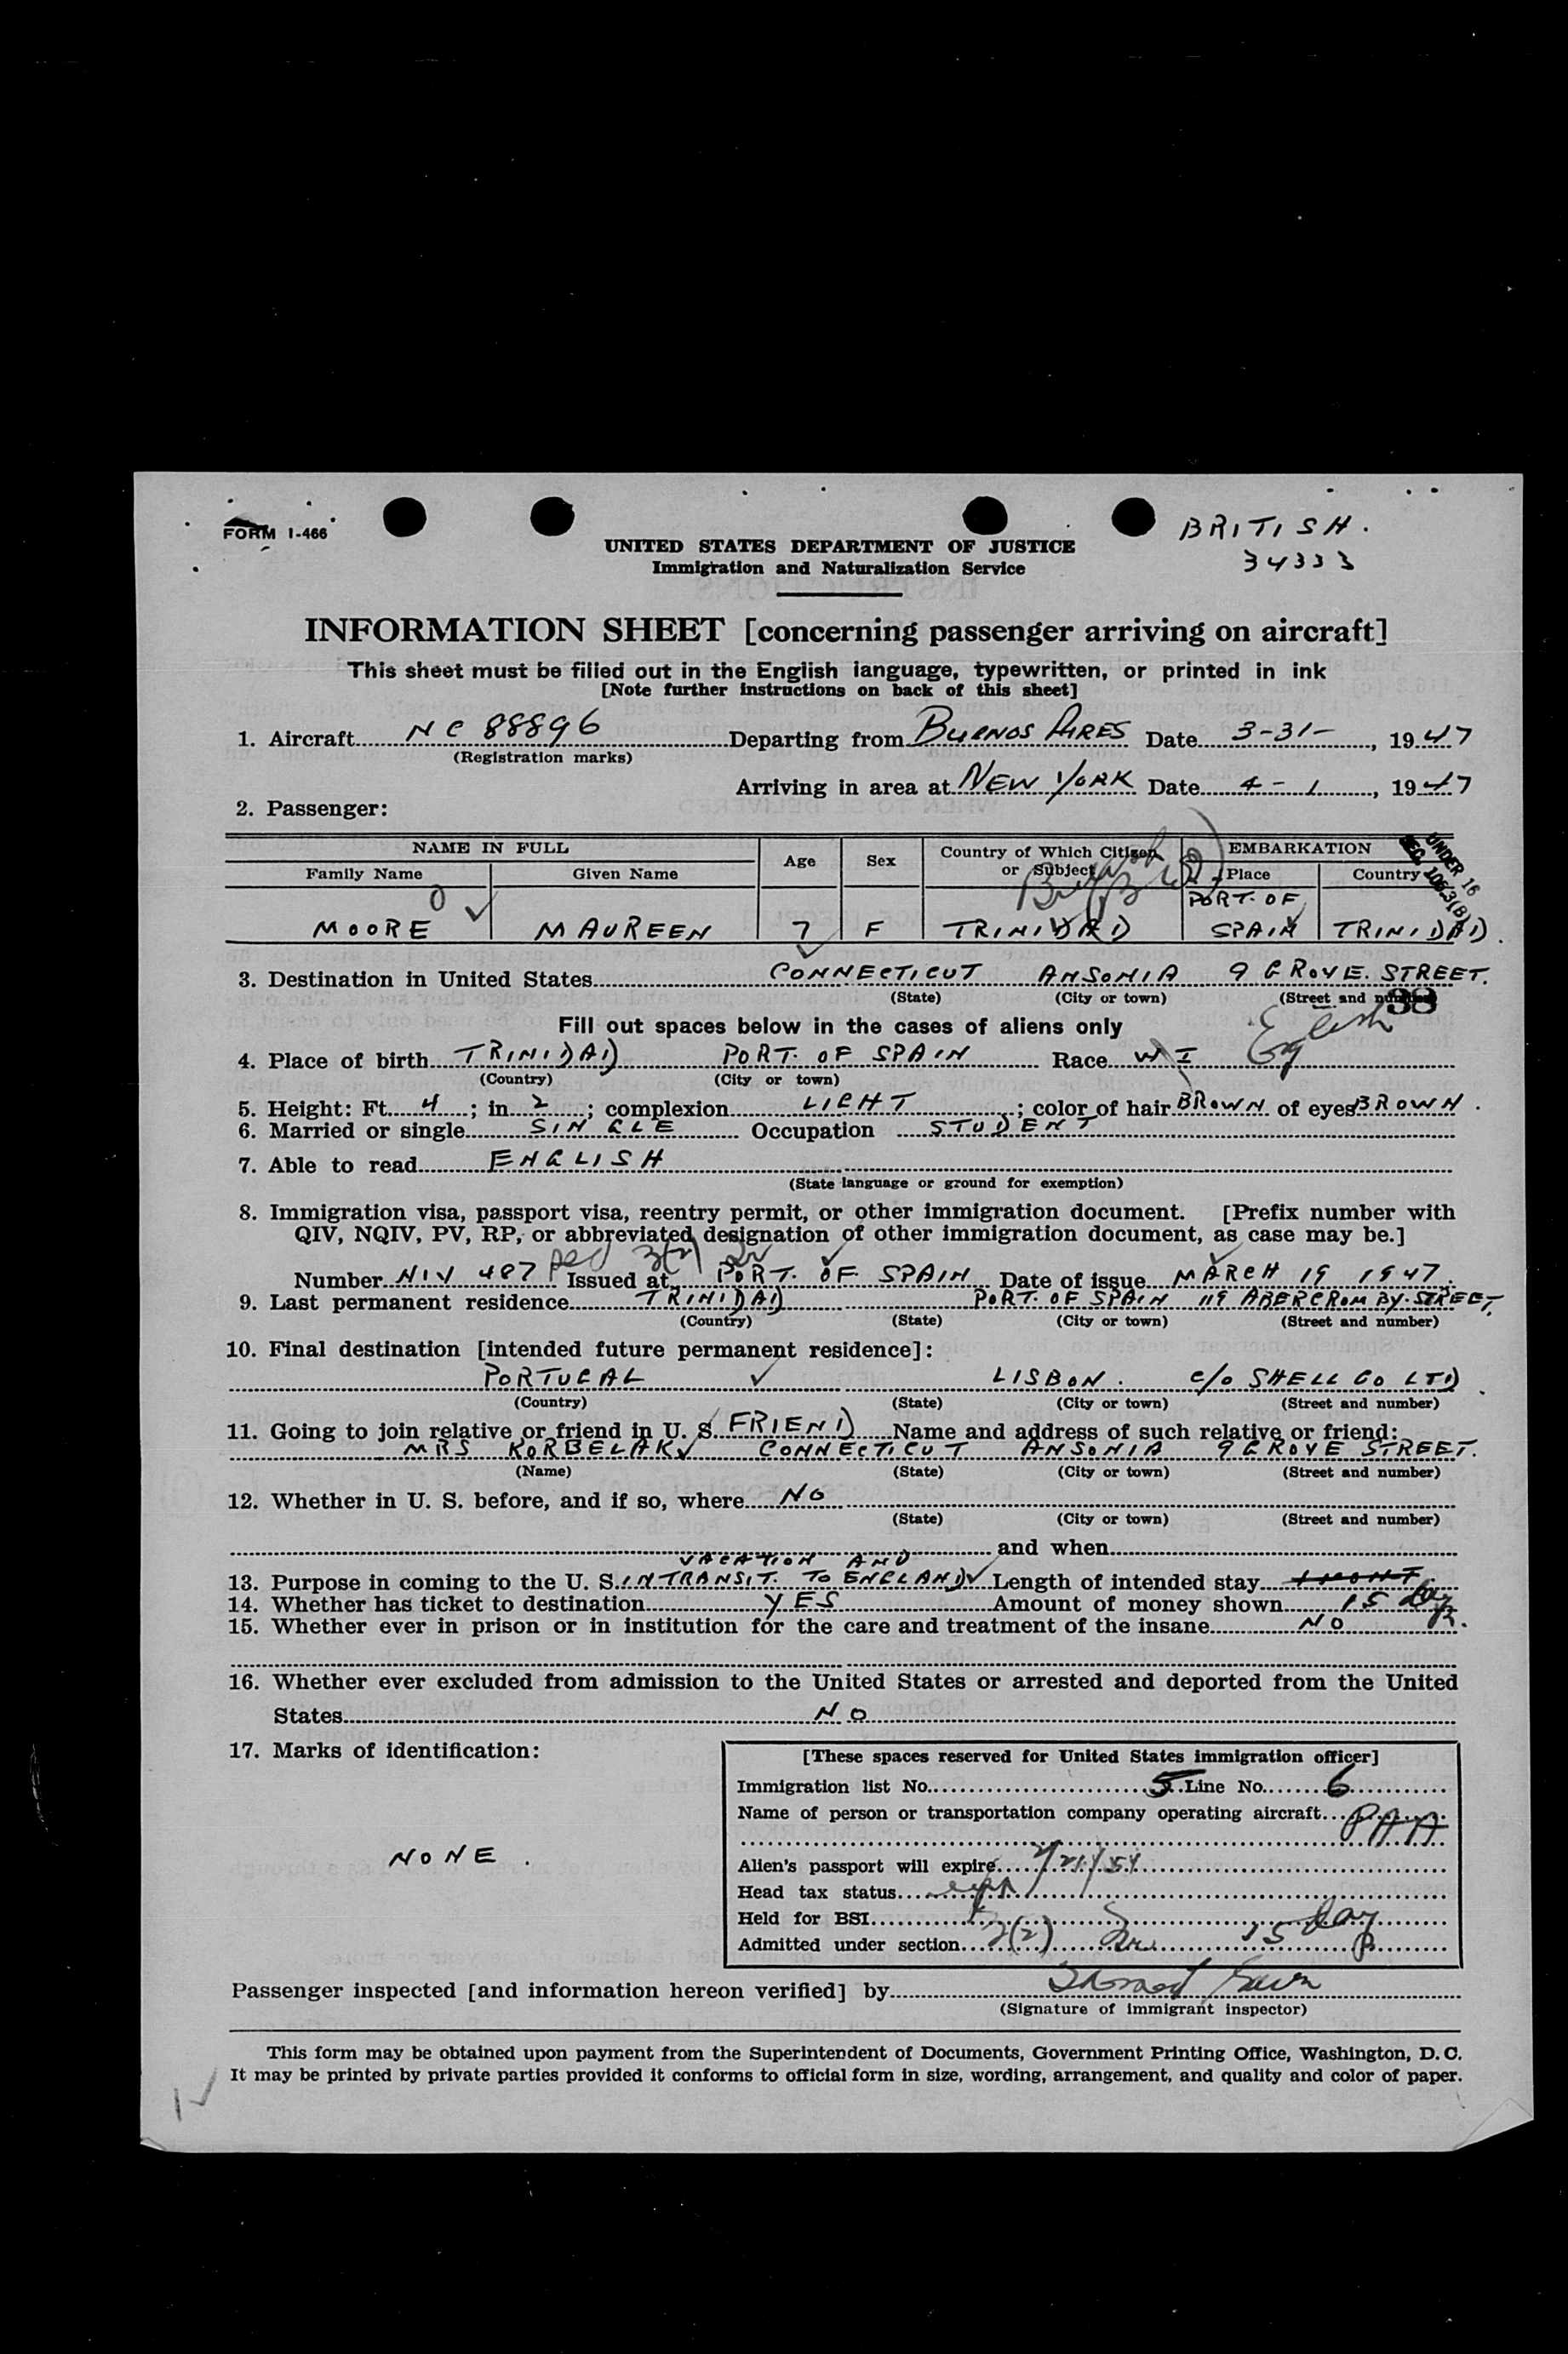 FORM I-466
BRITISH.
34333
UNITED STATES DEPARTMENT OF JUSTICE
Immigration and Naturalization Service
INFORMATION SHEET [concerning passenger arriving on aircraft]
This sheet must be filled out in the English language, typewritten, or printed in ink
[Note further instructions on back of this sheet]
1. Aircraft NC 88896 Departing from BUENOS AIRES Date 3-31-, 1947
(Registration marks)
Arriving in area at NEW YORK Date 4-1, 1947
2. Passenger:
NAME IN FULL Age Sex Country of Which Citizen or Subject EMBARKATION
Family Name Given Name Place Country
UNDER 16
REG. 106.3(B)
MOORE MAUREEN 7 F TRINIDAD PORT. OF SPAIN TRINIDAD.
3. Destination in United States CONNECTICUT ANSONIA 9 GROVE. STREET.
(State) (City or town) (Street and number)
38
Fill out spaces below in the cases of aliens only
4. Place of birth TRINIDAD PORT. OF SPAIN Race W I English
(Country) (City or town)
5. Height: Ft. 4; in. 2; complexion LIGHT; color of hair BROWN of eyes BROWN.
6. Married or single SINGLE Occupation STUDENT
7. Able to read ENGLISH
(State language or ground for exemption)
8. Immigration visa, passport visa, reentry permit, or other immigration document. [Prefix number with
QIV, NQIV, PV, RP, or abbreviated designation of other immigration document, as case may be.]
Number NIV 487 3(2) Issued at PORT. OF SPAIN Date of issue MARCH 19 1947.
9. Last permanent residence TRINIDAD PORT. OF SPAIN 119 ABERCROMBY. STREET.
(Country) (State) (City or town) (Street and number)
10. Final destination [intended future permanent residence]:
PORTUGAL LISBON. c/o SHELL CO LTD.
(Country) (State) (City or town) (Street and number)
11. Going to join relative or friend in U. S. FRIEND Name and address of such relative or friend:
MRS KORBELAK CONNECTICUT ANSONIA 9 GROVE STREET.
(Name) (State) (City or town) (Street and number)
12. Whether in U. S. before, and if so, where NO
(State) (City or town) (Street and number)
and when
VACATION AND
13. Purpose in coming to the U. S. IN TRANSIT. TO ENGLAND Length of intended stay
14. Whether has ticket to destination YES Amount of money shown 15 day
15. Whether ever in prison or in institution for the care and treatment of the insane NO.
16. Whether ever excluded from admission to the United States or arrested and deported from the United
States NO
17. Marks of identification:
NONE.
[These spaces reserved for United States immigration officer]
Immigration list No. 5 Line No. 6
Name of person or transportation company operating aircraft PAA
Alien's passport will expire
Head tax status
Held for BSI
Admitted under section 3(2) 15 day
Passenger inspected [and information hereon verified] by
(Signature of immigrant inspector)
This form may be obtained upon payment from the Superintendent of Documents, Government Printing Office, Washington, D. C.
It may be printed by private parties provided it conforms to official form in size, wording, arrangement, and quality and color of paper.